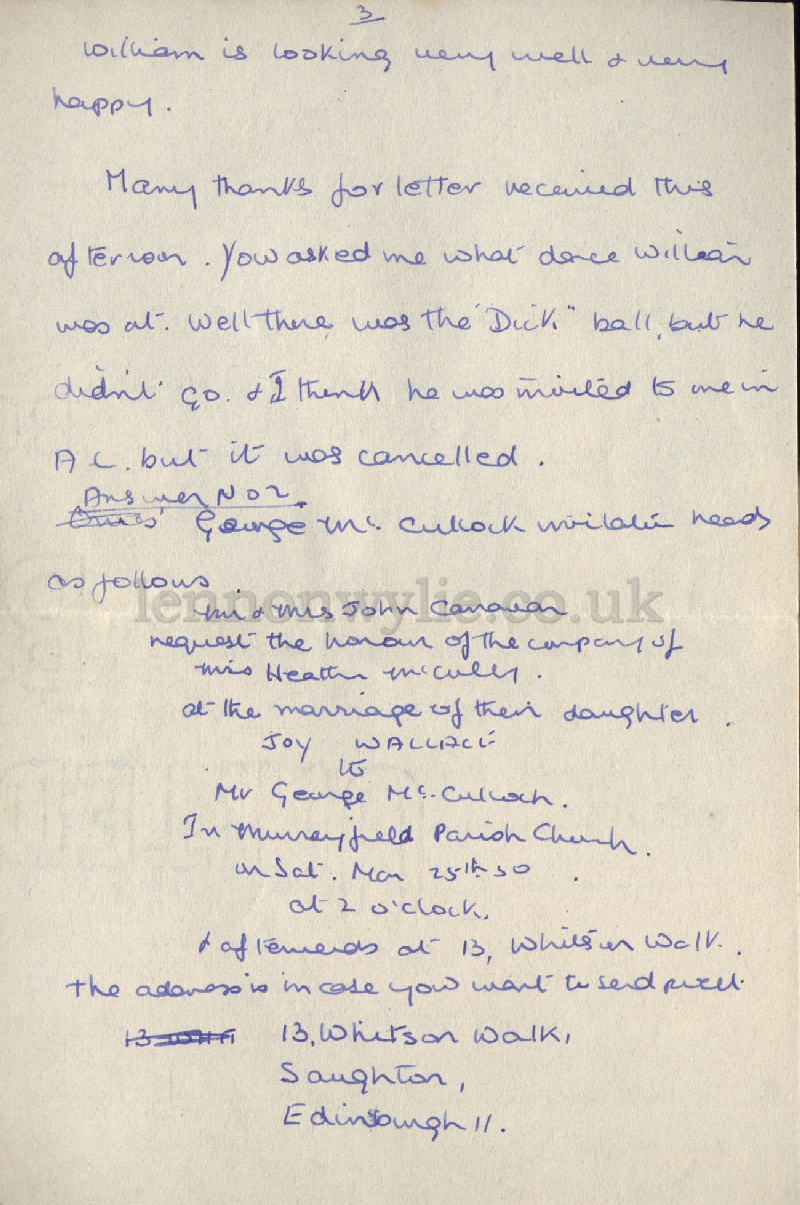 3
William is looking very well & very
happy.
Many thanks for letter received this
afternoon. You asked me what dance William
was at. Well there was the "Dick" ball, but he
didn't go. & I think he was invited to one in
A C. but it was cancelled.
Answer No 2.
George Mc. Cullock invitation reads
as follows
lennonwylie.co.uk
Mr & Mrs John Canavan
request the honour of the company of
Miss Heather McCully.
at the marriage of their daughter.
JOY WALLACE
to
Mr George Mc. Culloch.
In Murrayfield Parish Church.
on Sat. Mar 25th 50.
at 2 o'clock.
& afterwards at 13, Whitson Walk.
The address is in case you want to send
13, Whitson Walk,
Saughton,
Edinburgh 11.